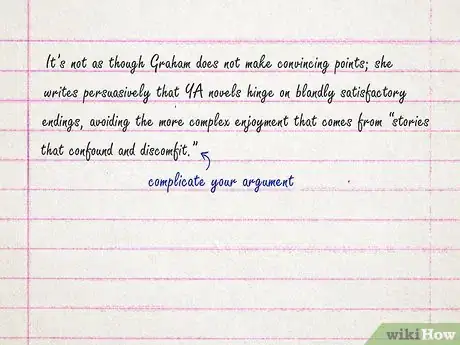 It's not as though Graham does not make convincing points; she
writes persuasively that YA novels hinge on blandly satisfactory
endings, avoiding the more complex enjoyment that comes from "stories
that confound and discomfit."
complicate your argument
wikiHow